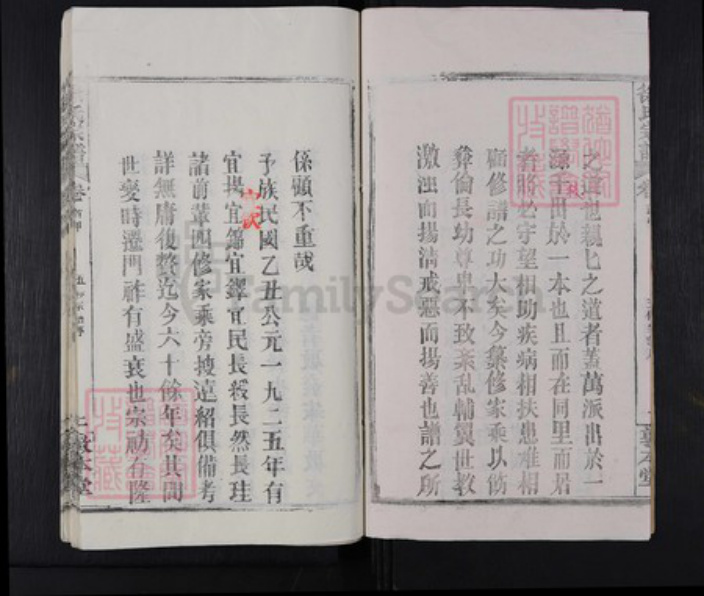 之道也親七之道者蓋萬派出於一
源千出於一本也且而在同里而居
者將必守望相助疾病相扶患難相
顧修譜之功大矣今纂修家乘以飭
彝倫長幼尊卑不致紊乱輔翼世教
激浊而揚清戒惡而揚善也譜之所
係顧不重哉
予族民國乙丑公元一九二五年有
宜揚宜錦宜鐸宜民長發長然長珪
諸前輩四修家乘旁搜遠紹俱備考
詳無庸復贅迄今六十餘年矣其間
世变時遷門祚有盛衰也崇祊有隆
敦本堂
FamilySearch